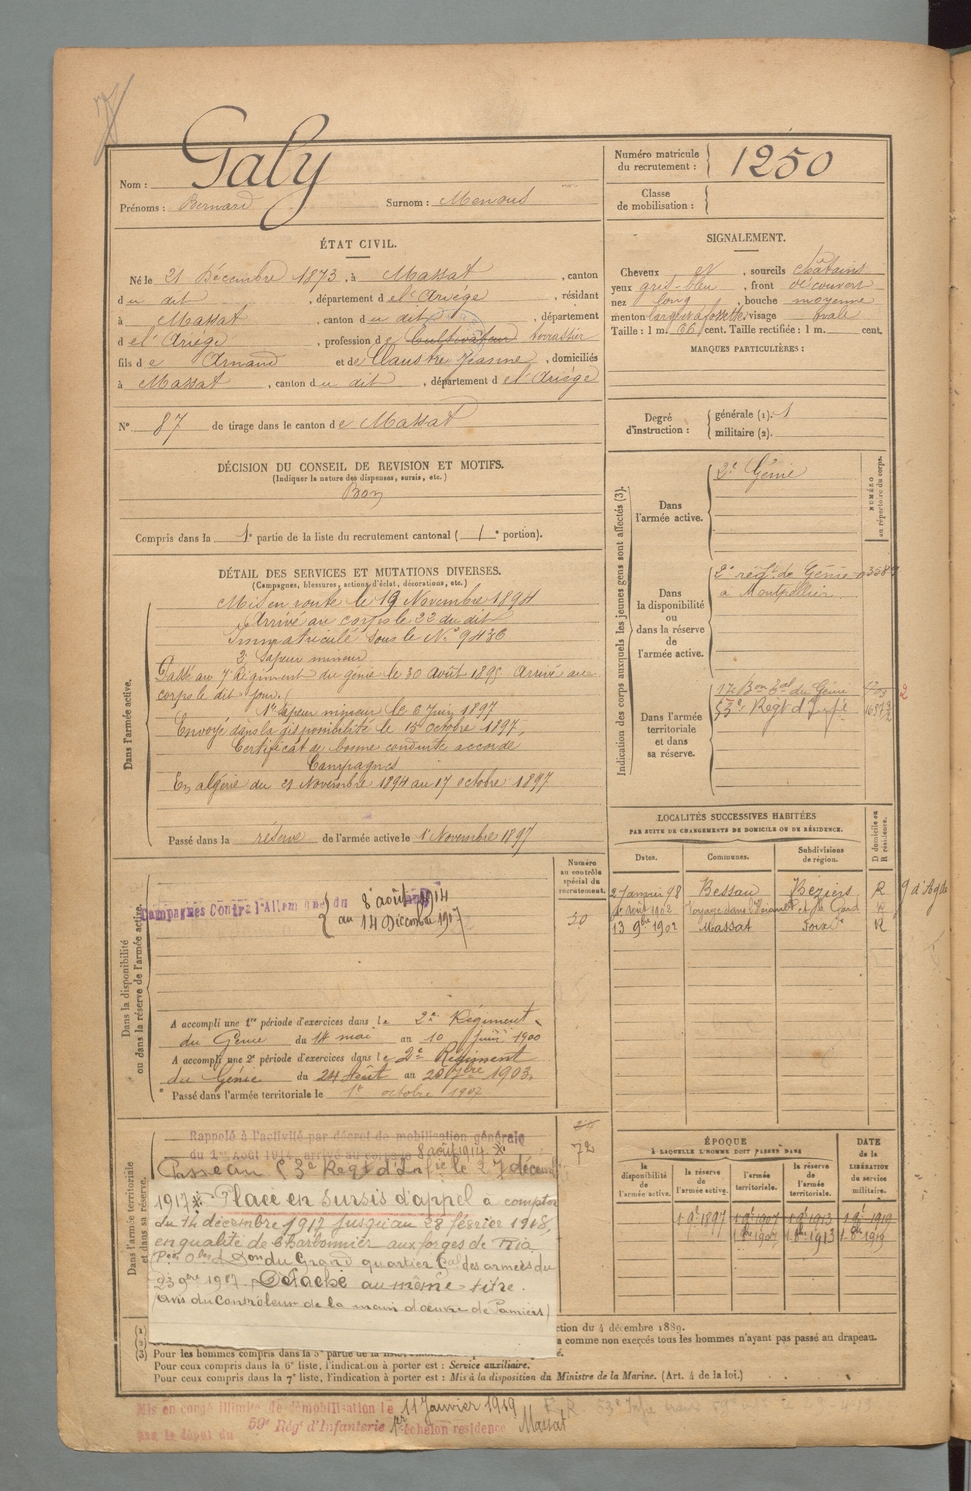 Galy
Nom :
Prénoms : Bernard Surnom : Menoud
Numéro matricule du recrutement : 1250
Classe de mobilisation :
ÉTAT CIVIL.
Né le 21 Décembre 1873, à Massat, canton
du dit, département de l'Ariège, résidant
à Massat, canton du dit, département
de l'Ariège, profession de Cultivateur terrassier
fils de Arnaud et de Claustre Jeanne, domiciliés
à Massat, canton du dit, département de l'Ariège
N° 87 de tirage dans le canton de Massat
SIGNALEMENT.
Cheveux et, sourcils châtains
yeux gris-bleu, front découvert
nez long, bouche moyenne
menton large à fossette, visage ovale
Taille : 1 m. 66 cent. Taille rectifiée : 1 m. cent.
MARQUES PARTICULIÈRES :
Degré d'instruction : générale (1). 1
militaire (2).
DÉCISION DU CONSEIL DE REVISION ET MOTIFS.
(Indiquer la nature des dispenses, sursis, etc.)
Bon
Compris dans la 1e partie de la liste du recrutement cantonal ( 1e portion).
DÉTAIL DES SERVICES ET MUTATIONS DIVERSES.
(Campagnes, blessures, actions d'éclat, décorations, etc.)
Dans l'armée active.
Mis en route le 19 Novembre 1894
Arrivé au corps le 22 du dit
Immatriculé sous le N° 9436
2e Sapeur mineur
Passé au 7e Régiment du génie le 30 août 1895 Arrivé au
corps le dit jour.
1er Sapeur mineur le 6 Juin 1897
Envoyé dans la disponibilité le 15 octobre 1897,
Certificat de bonne conduite accordé
Campagnes
En algérie du 21 Novembre 1894 au 17 octobre 1897
Passé dans la réserve de l'armée active le 1er Novembre 1897
Indication des corps auxquels les jeunes gens sont affectés (3).
NUMÉRO au répertoire du corps.
Dans l'armée active.
2e Génie
Dans la disponibilité ou dans la réserve de l'armée active.
2e régt de Génie
à Montpellier
Dans l'armée territoriale et dans sa réserve.
17e Bon Tal du Génie
53e Régt d'Infie
LOCALITÉS SUCCESSIVES HABITÉES
PAR SUITE DE CHANGEMENTS DE DOMICILE OU DE RÉSIDENCE.
Dates. Communes. Subdivisions de région. D domicile ou R résidence.
2 Janvier 98 Bessan Béziers R
1er août 1902 Voyage dans l'Hérault et le Gard R
13 9bre 1902 Massat Foix R
Numéro au contrôle spécial du recrutement.
Dans la disponibilité ou dans la réserve de l'armée active.
Campagnes Contre l'Allemagne du 8 août 1914
au 14 Décembre 1917
50
A accompli une 1re période d'exercices dans le 2e Régiment
du Génie du 14 mai au 10 Juin 1900
A accompli une 2e période d'exercices dans le 2e Régiment
du Génie du 24 Août au 20 7bre 1903.
Passé dans l'armée territoriale le 1er octobre 1907
Dans l'armée territoriale et dans sa réserve.
72
Rappelé à l'activité par décret de mobilisation générale
du 1er Août 1914, arrivé au corps le 8 août 1914
Passé au 53e Régt d'Infie le 27 décembre
1917 * Placé en sursis d'appel à compter
du 14 décembre 1917 jusqu'au 28 février 1918,
en qualité de Charbonnier aux forges de Ria
du Grand quartier Gal des armées du
23 9bre 1917. Détaché au même titre.
(avis du Contrôleur de la main d'oeuvre de Pamiers)
ÉPOQUE
À LAQUELLE L'HOMME DOIT PASSER DANS
la disponibilité de l'armée active. la réserve de l'armée active. l'armée territoriale. la réserve de l'armée territoriale.
DATE de la LIBÉRATION du service militaire.
1 9e 1897 1 9e 1907 1 9e 1913 1 9e 1919
1 8bre 1907 1 8bre 1913 1 8bre 1919
(1)
ction du 4 décembre 1889.
(2)
a comme non exercés tous les hommes n'ayant pas passé au drapeau.
(3) Pour les hommes compris dans la 5e partie de la liste,
Pour ceux compris dans la 6e liste, l'indication à porter est : Service auxiliaire.
Pour ceux compris dans la 7e liste, l'indication à porter est : Mis à la disposition du Ministre de la Marine. (Art. 4 de la loi.)
Mis en congé illimité de démobilisation le 11 Janvier 1919
par le dépôt du 59e Rég d'Infanterie 1er échelon résidence Massat